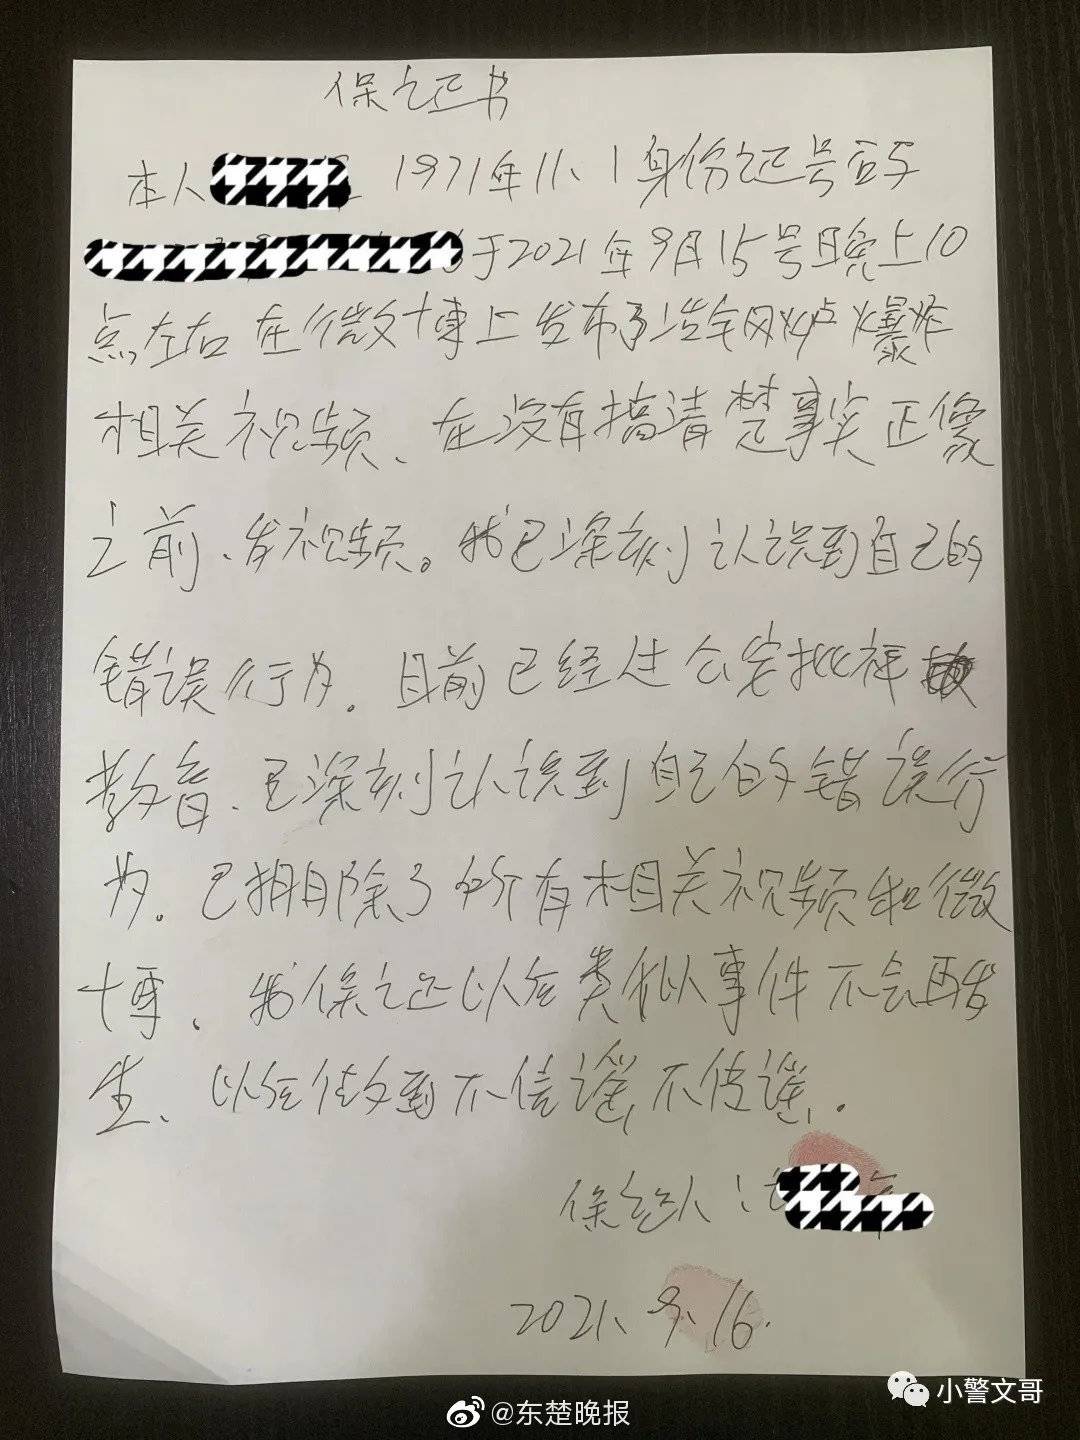 保证书
本人 1971年11、1身份证号码
于2021年9月15号晚上10
点左右在微博上发布了冶钢风炉爆炸
相关视频、在没有搞清楚事实正像
之前、发视频。我已深刻认识到自己的
错误行为。目前已经过公安批评
教育、已深刻认识到自己的错误行
为。已删除了所有相关视频和微
博、我保证以后类似事件不会再发
生、以后做到不信谣,不传谣,.
保证人:
2021、9、16.
@东楚晚报
小警文哥